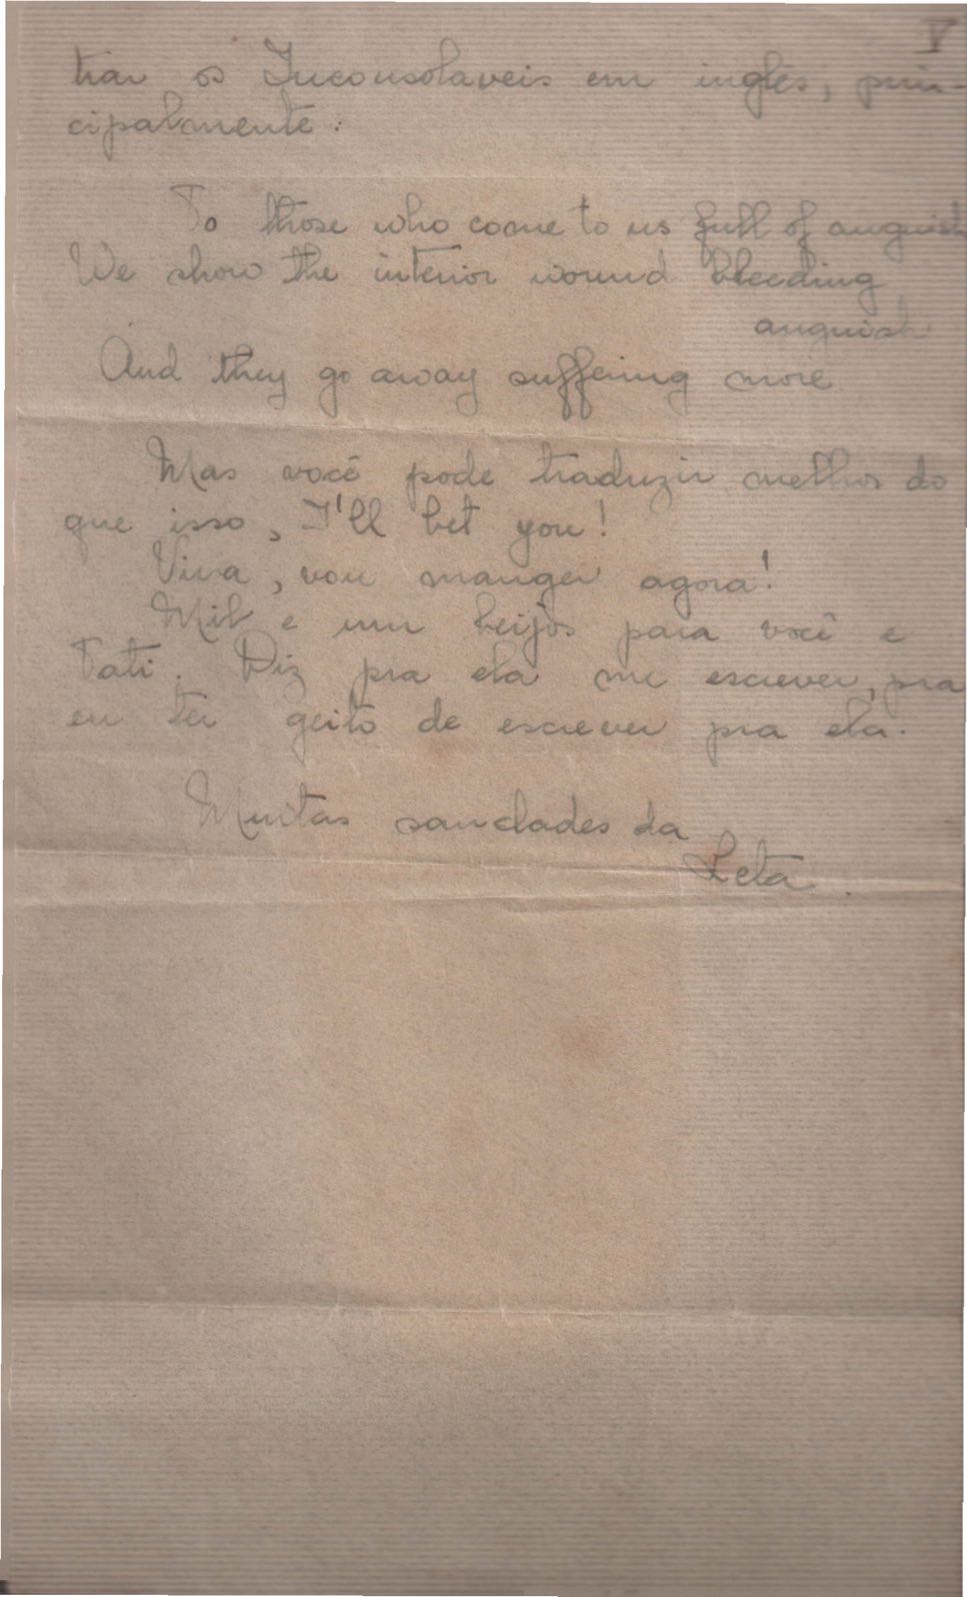 V
trar os Inconsolaveis em inglês, prin-
cipalmente:
To those who come to us full of anguish
We show the interior wound bleeding
anguish
And they go away suffering more.
Mas você pode traduzir melhor do
que isso, I'll bet you!
Viva, vou manger agora!
Mil e um beijos para você e
Tati. Diz pra ela me escrever, pra
eu ter geito de escrever pra ela.
Muitas saudades da
Leta.